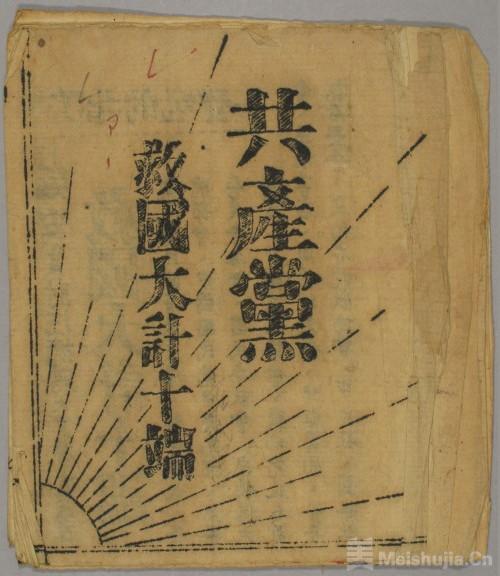 共產黨
救國大計十端
美 Meishujia.Cn